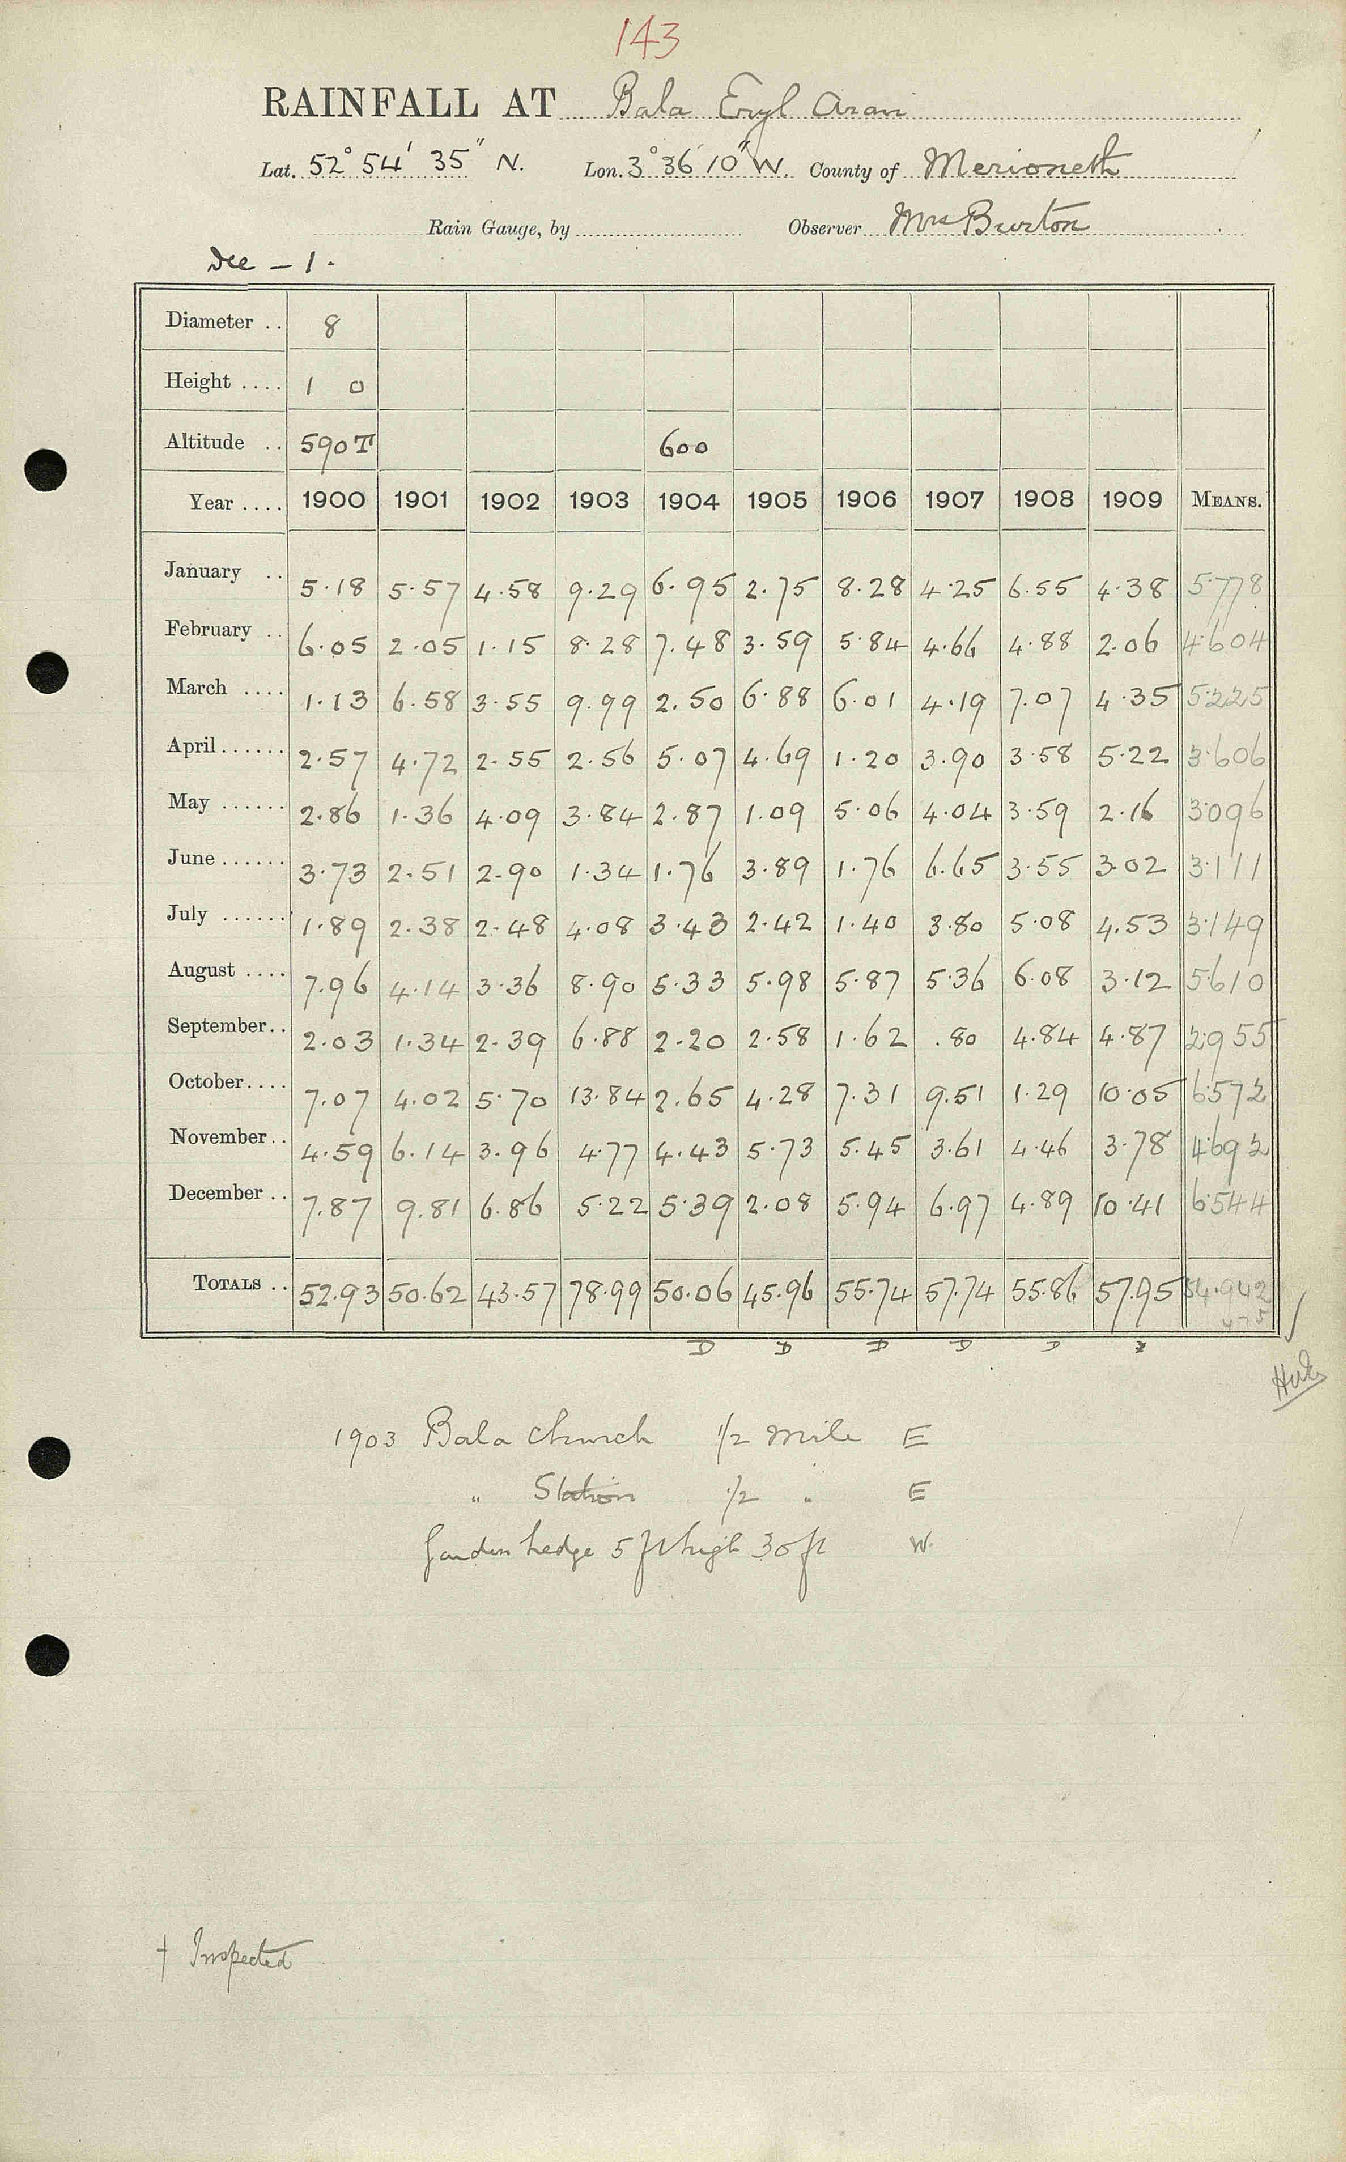 143
RAINFALL AT Bala Eryl Aran
Lat. 52° 54' 35" N. Lon. 3° 36' 10" W. County of Merioneth
Rain Gauge, by Observer Mrs Burton
Dee - 1.
Diameter .. 8
Height .... 1 0
Altitude .. 590 T 600
Year .... 1900 1901 1902 1903 1904 1905 1906 1907 1908 1909 MEANS.
January .. 5.18 5.57 4.58 9.29 6.95 2.75 8.28 4.25 6.55 4.38 5.778
February .. 6.05 2.05 1.15 8.28 7.48 3.59 5.84 4.66 4.88 2.06 4.604
March .... 1.13 6.58 3.55 9.99 2.50 6.88 6.01 4.19 7.07 4.35 5.225
April ...... 2.57 4.72 2.55 2.56 5.07 4.69 1.20 3.90 3.58 5.22 3.606
May ...... 2.86 1.36 4.09 3.84 2.87 1.09 5.06 4.04 3.59 2.16 3.096
June ...... 3.73 2.51 2.90 1.34 1.76 3.89 1.76 6.65 3.55 3.02 3.111
July ...... 1.89 2.38 2.48 4.08 3.43 2.42 1.40 3.80 5.08 4.53 3.149
August .... 7.96 4.14 3.36 8.90 5.33 5.98 5.87 5.36 6.08 3.12 5.610
September .. 2.03 1.34 2.39 6.88 2.20 2.58 1.62 .80 4.84 4.87 2.955
October .... 7.07 4.02 5.70 13.84 2.65 4.28 7.31 9.51 1.29 10.05 6.572
November .. 4.59 6.14 3.96 4.77 4.43 5.73 5.45 3.61 4.46 3.78 4.692
December .. 7.87 9.81 6.86 5.22 5.39 2.08 5.94 6.97 4.89 10.41 6.544
TOTALS .. 52.93 50.62 43.57 78.99 50.06 45.96 55.74 57.74 55.86 57.95 54.942
D D D D D
1903 Bala Church 1/2 mile E
" Station 1/2 " E
Garden hedge 5 ft high 30 ft W.
† Inspected